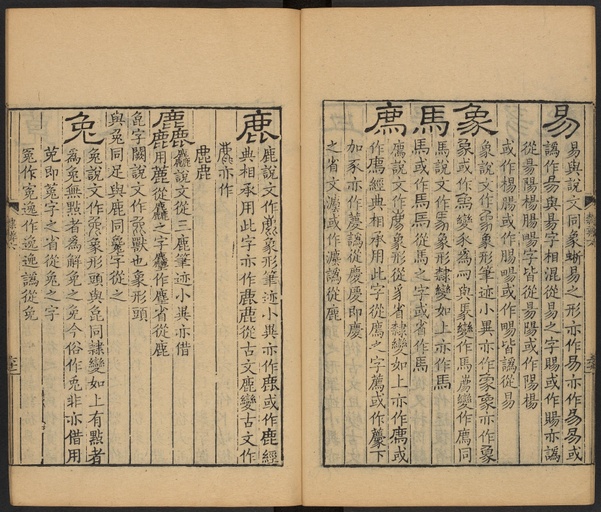 易 易與說文同象蜥易之形亦作易亦作易易或
譌作昜與昜字相混從易之字賜或作賜亦譌
從昜陽楊腸暢字皆從昜陽或作陽楊
或作楊腸或作腸暢或作暢皆譌從易
象 象說文作象象形筆迹小異亦作象象亦作象
象或作為變豕為與㬥變作馬廌變作廌同
馬 馬說文作馬象形隸變如上亦作馬
馬或作馬馬從馬之字或省作馬
廌 廌說文作廌象形從豸省隸變如上亦作廌或
作廌經典相承用此字從廌之字薦或作薦下
加豕亦作 譌從慶慶即慶
之省文灋或作 譌從鹿
鹿 鹿說文作鹿象形筆迹小異亦作鹿或作鹿經
典相承用此字亦作鹿鹿從古文鹿變古文作
麤亦作
鹿鹿
麤 麤說文從三鹿筆迹小異亦借
麤用鹿從麤之字 作 省從鹿
㲋字闕說文作㲋獸也象形頭
與兔同足與鹿同毚字從之
兔 兔說文作兔象形頭與㲋同隸變如上有點者
為兔無點者為解免之免今俗作兎非亦借用
免即兔字之省從兔之字
冤作寃逸作逸逸譌從免